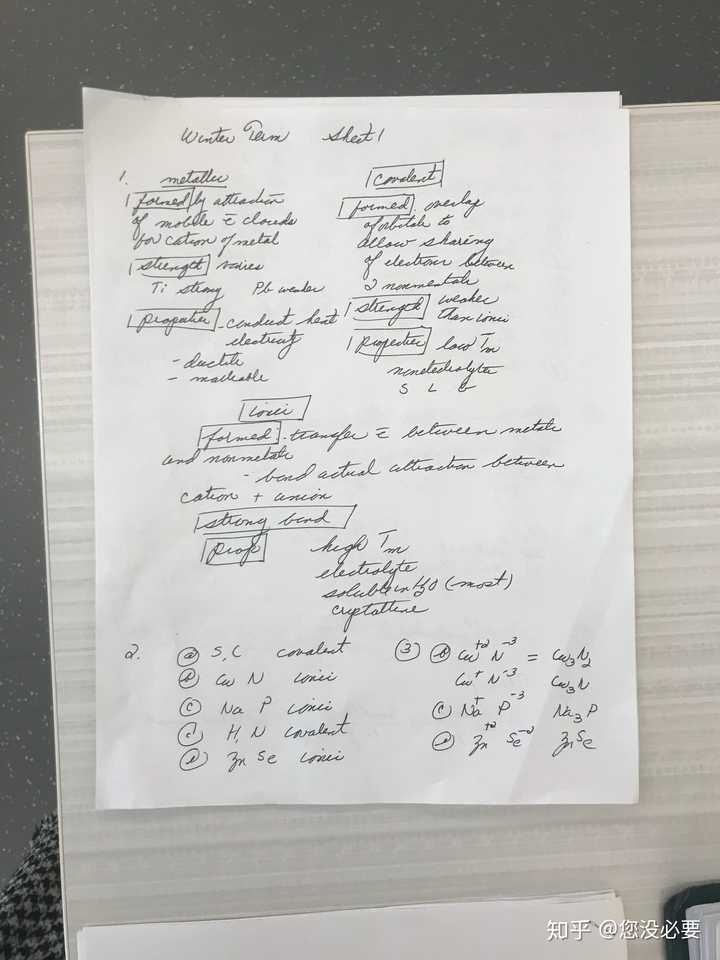 Winter Term Sheet 1
1. metallic
formed by attraction
of mobile ē clouds
for cation of metal
strength varies
Ti strong Pb weaker
Properties - conduct heat
electricity
- ductile
- malleable
covalent
formed: overlap
of orbitals to
allow sharing
of electrons between
2 nonmetals
strength weaker
than ionic
Properties low Tm
nonelectrolytes
S L G
ionic
formed: - transfer ē between metals
and nonmetals
- bond actual attraction between
cation + anion
strong bond
Props high Tm
electrolyte
soluble in H2O (most)
crystalline
2. (a) S, C covalent
(b) Cu N ionic
(c) Na P ionic
(d) H, N covalent
(e) Zn Se ionic
(3) (b) Cu+2 N-3 = Cu3N2
Cu+ N-3 Cu3N
(c) Na+ P-3 Na3P
(e) Zn+2 Se-2 ZnSe
知乎 @您没必要